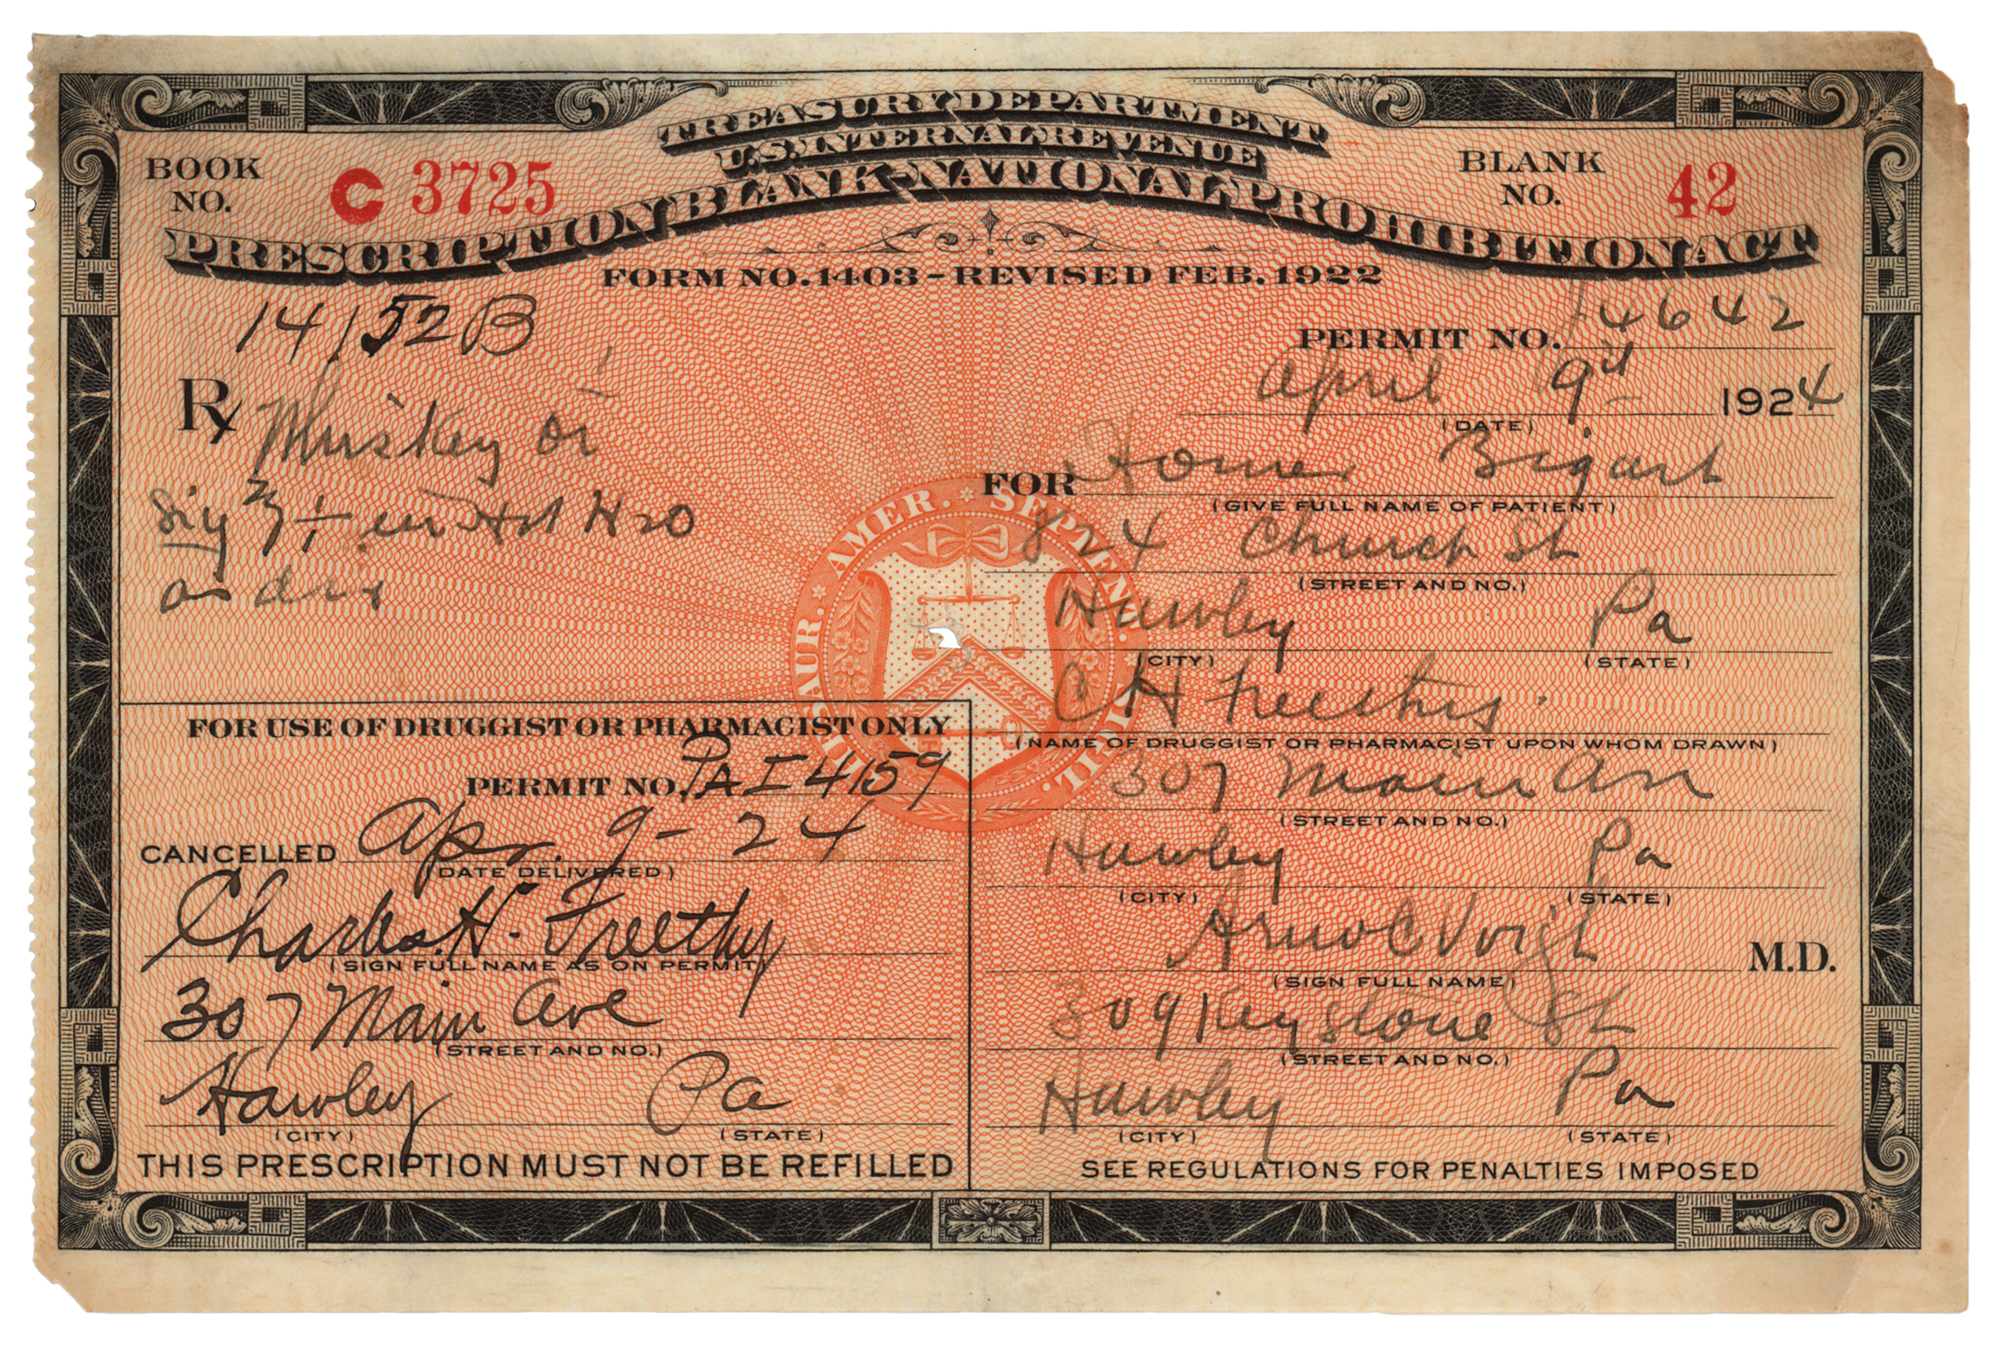 TREASURY DEPARTMENT
U.S. INTERNAL REVENUE
PRESCRIPTION BLANK-NATIONAL PROHIBITION ACT
FORM NO. 1403 - REVISED FEB. 1922
BOOK NO. C 3725
BLANK NO. 42
14152B
Rx
in Hot H2O
PERMIT NO. 4642
April 9 1924
(DATE)
FOR Homer Bigart
(GIVE FULL NAME OF PATIENT)
824 Church St
(STREET AND NO.)
Hawley Pa
(CITY) (STATE)
C H Freethy
(NAME OF DRUGGIST OR PHARMACIST UPON WHOM DRAWN)
307 Main Av
(STREET AND NO.)
Hawley Pa
(CITY) (STATE)
Arno C Voigt M.D.
(SIGN FULL NAME)
309 Keystone St
(STREET AND NO.)
Hawley Pa
(CITY) (STATE)
SEE REGULATIONS FOR PENALTIES IMPOSED
FOR USE OF DRUGGIST OR PHARMACIST ONLY
PERMIT NO. PA I 4159
CANCELLED Apr. 9-24
(DATE DELIVERED)
Charles H. Freethy
(SIGN FULL NAME AS ON PERMIT)
307 Main Ave
(STREET AND NO.)
Hawley Pa
(CITY) (STATE)
THIS PRESCRIPTION MUST NOT BE REFILLED
THESAUR. AMER. SEPTEN. SIGIL.